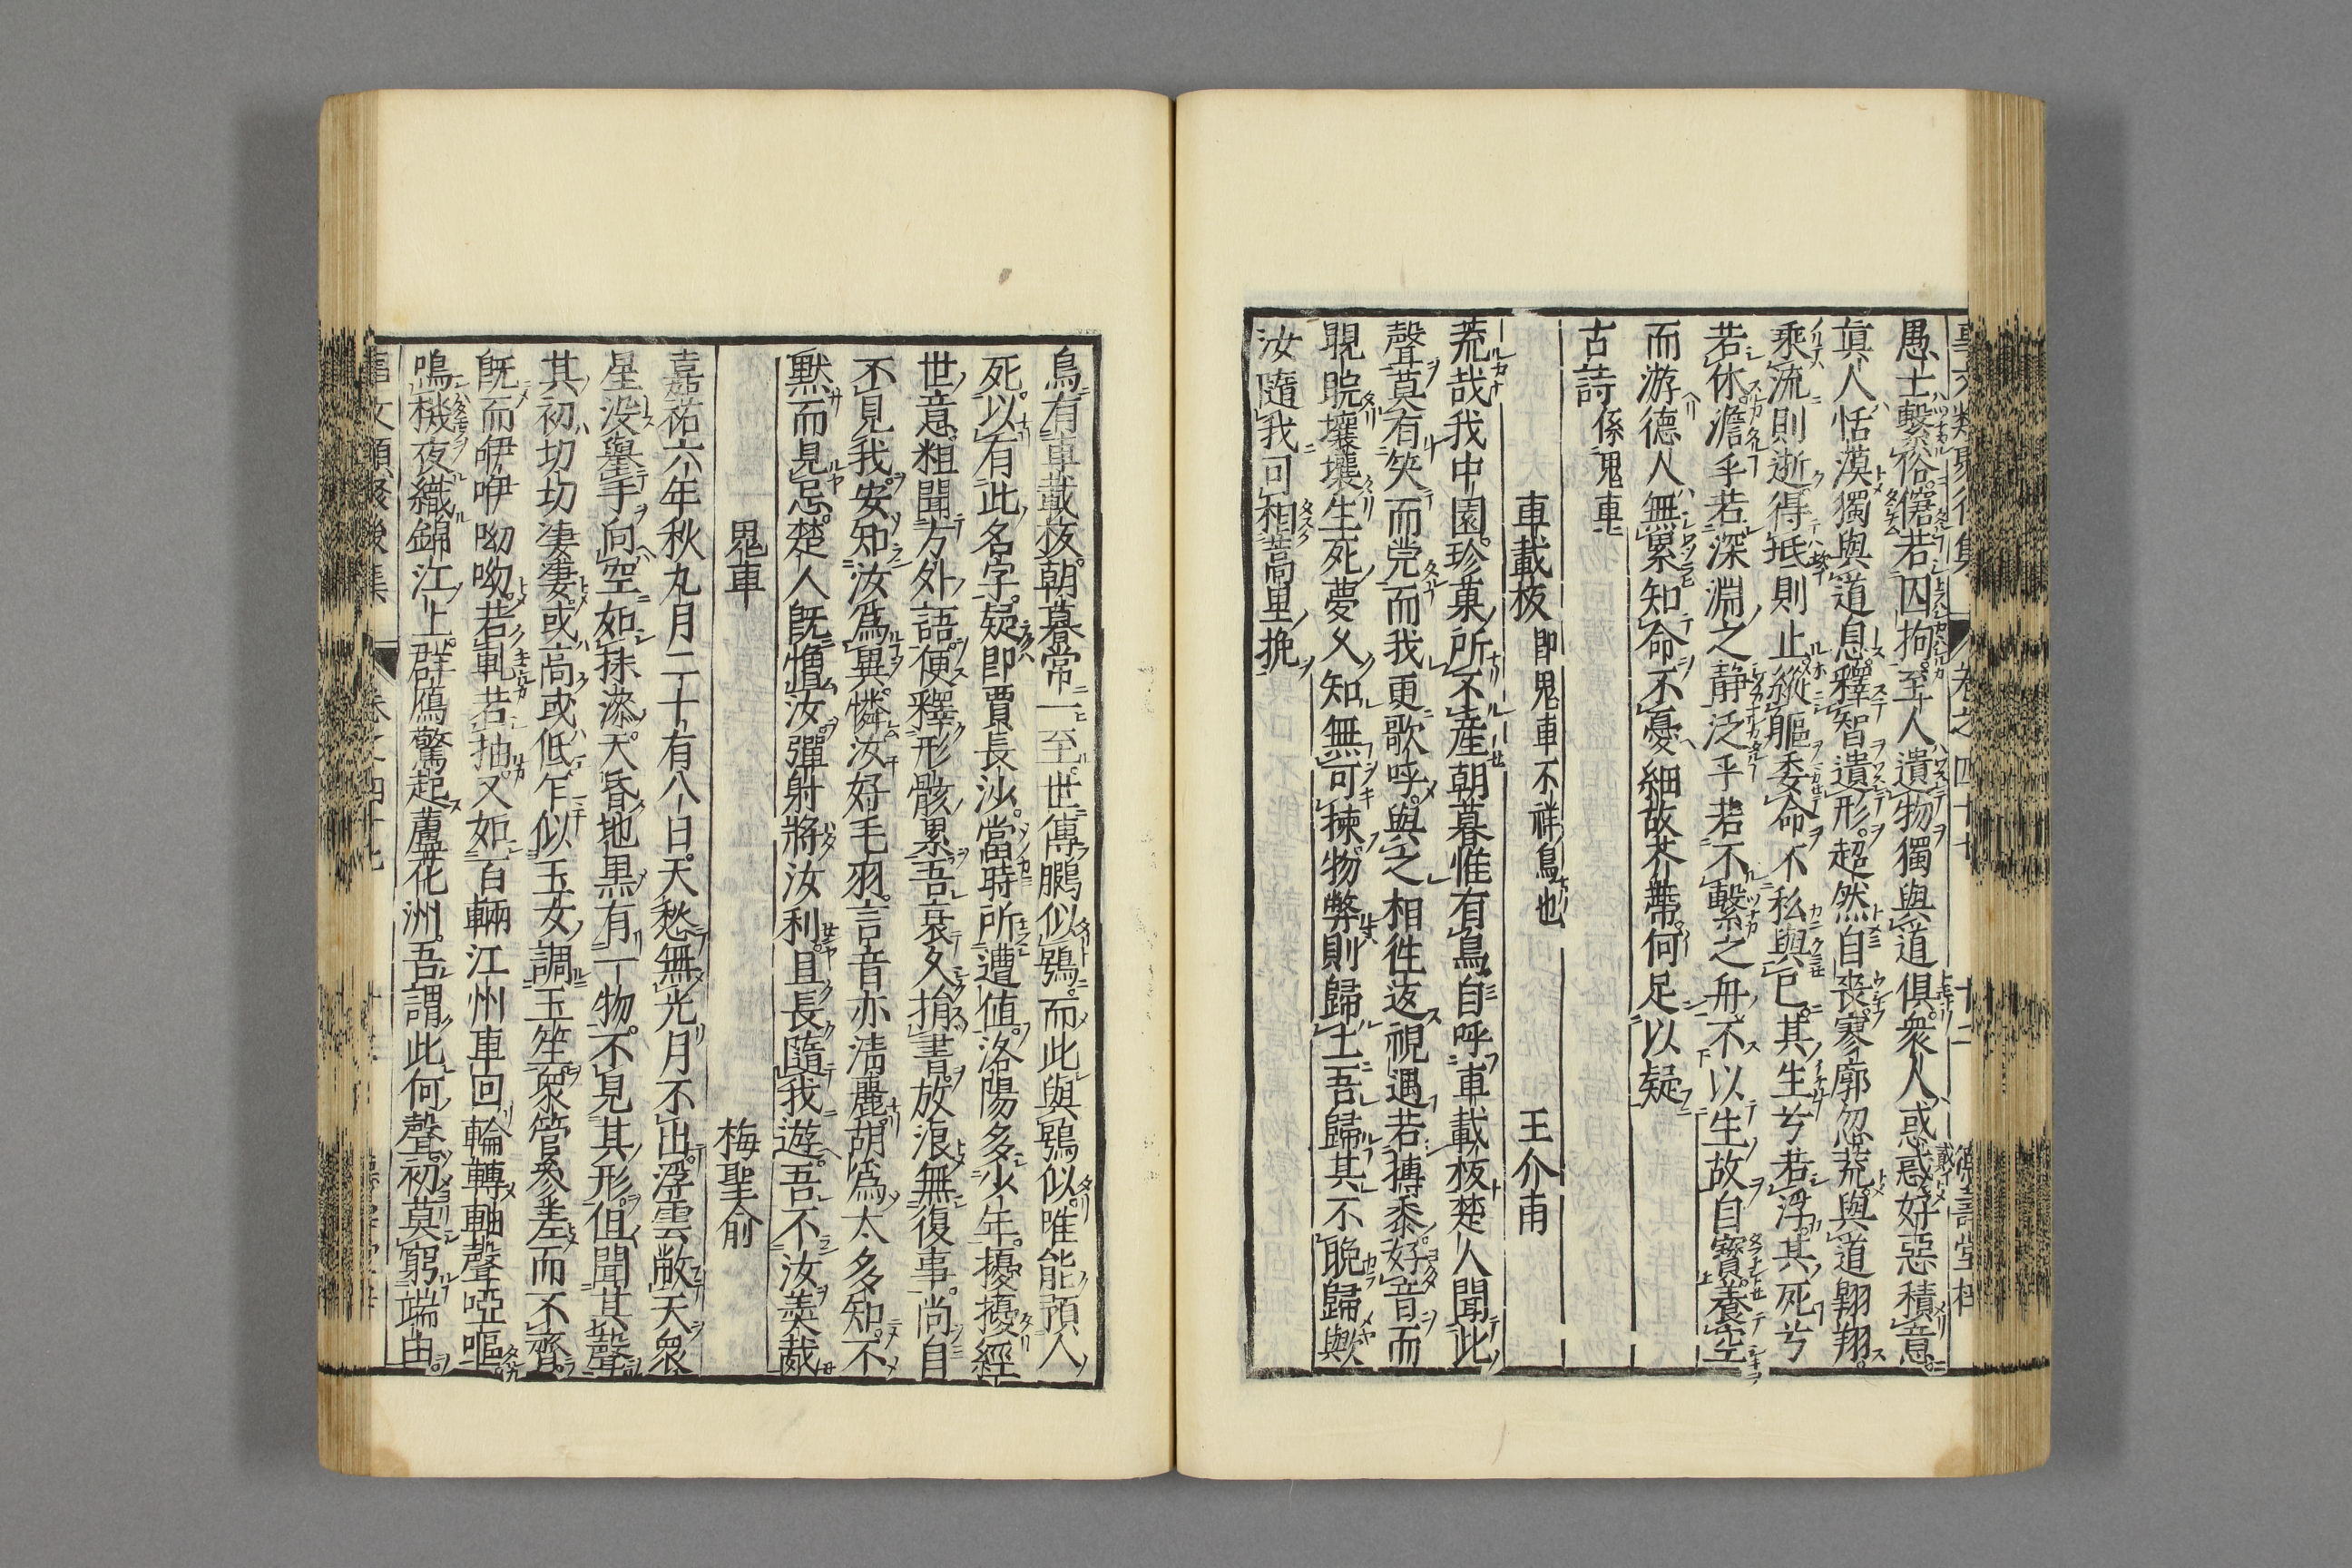 愚士繫俗僒若囚拘至人遺物獨與道俱衆人惑惑好惡積意
眞人恬漠獨與道息釋智遺形超然自喪寥廓忽荒與道翱翔
乘流則逝得抵則止縱軀委命不私與巳其生兮若浮其死兮
若休澹乎若深淵之靜泛乎若不繫之舟不以生故自寶養空
而游德人無累知命不憂細故芥蔕何足以疑
古詩係鬼車
車載板即鬼車不祥鳥也 王介甫
荒哉我中園珍菓所不産朝暮惟有鳥自呼車載板楚人聞此
聲莫有笑而莞而我更歌呼與之相徃返視遇若摶黍好音而
睍睆壤壤生死夢久知無可揀物弊則歸土吾歸其不晩歸與歟
汝隨我可相蒿里挽
鳥有車載板朝暮常一至世傳鵩似鴞而此與鴞似唯能預人
死以有此名字疑即賈長沙當時所遭値洛陽多少年擾擾經
世意粗聞方外語便釋形骸累吾衰久捐書放浪無復事尚自
不見我安知汝爲異憐汝好毛羽言音亦淸麗胡爲太多知不
默而見忌楚人旣憎汝彈射將汝利且長隨我遊吾不汝羙胾
鬼車 梅聖俞
嘉祐六年秋九月二十有八日天愁無光月不出浮雲蔽天衆
星没舉手向空如抹漆天昏地黒有一物不見其形但聞其聲
其初切切凄凄或高或低乍似玉女調玉笙衆管參差而不齊
旣而咿咿呦呦若軋若抽又如百輛江州車回輪轉軸聲啞嘔
鳴機夜織錦江上群鴈驚起蘆花洲吾謂此何聲初莫窮端由